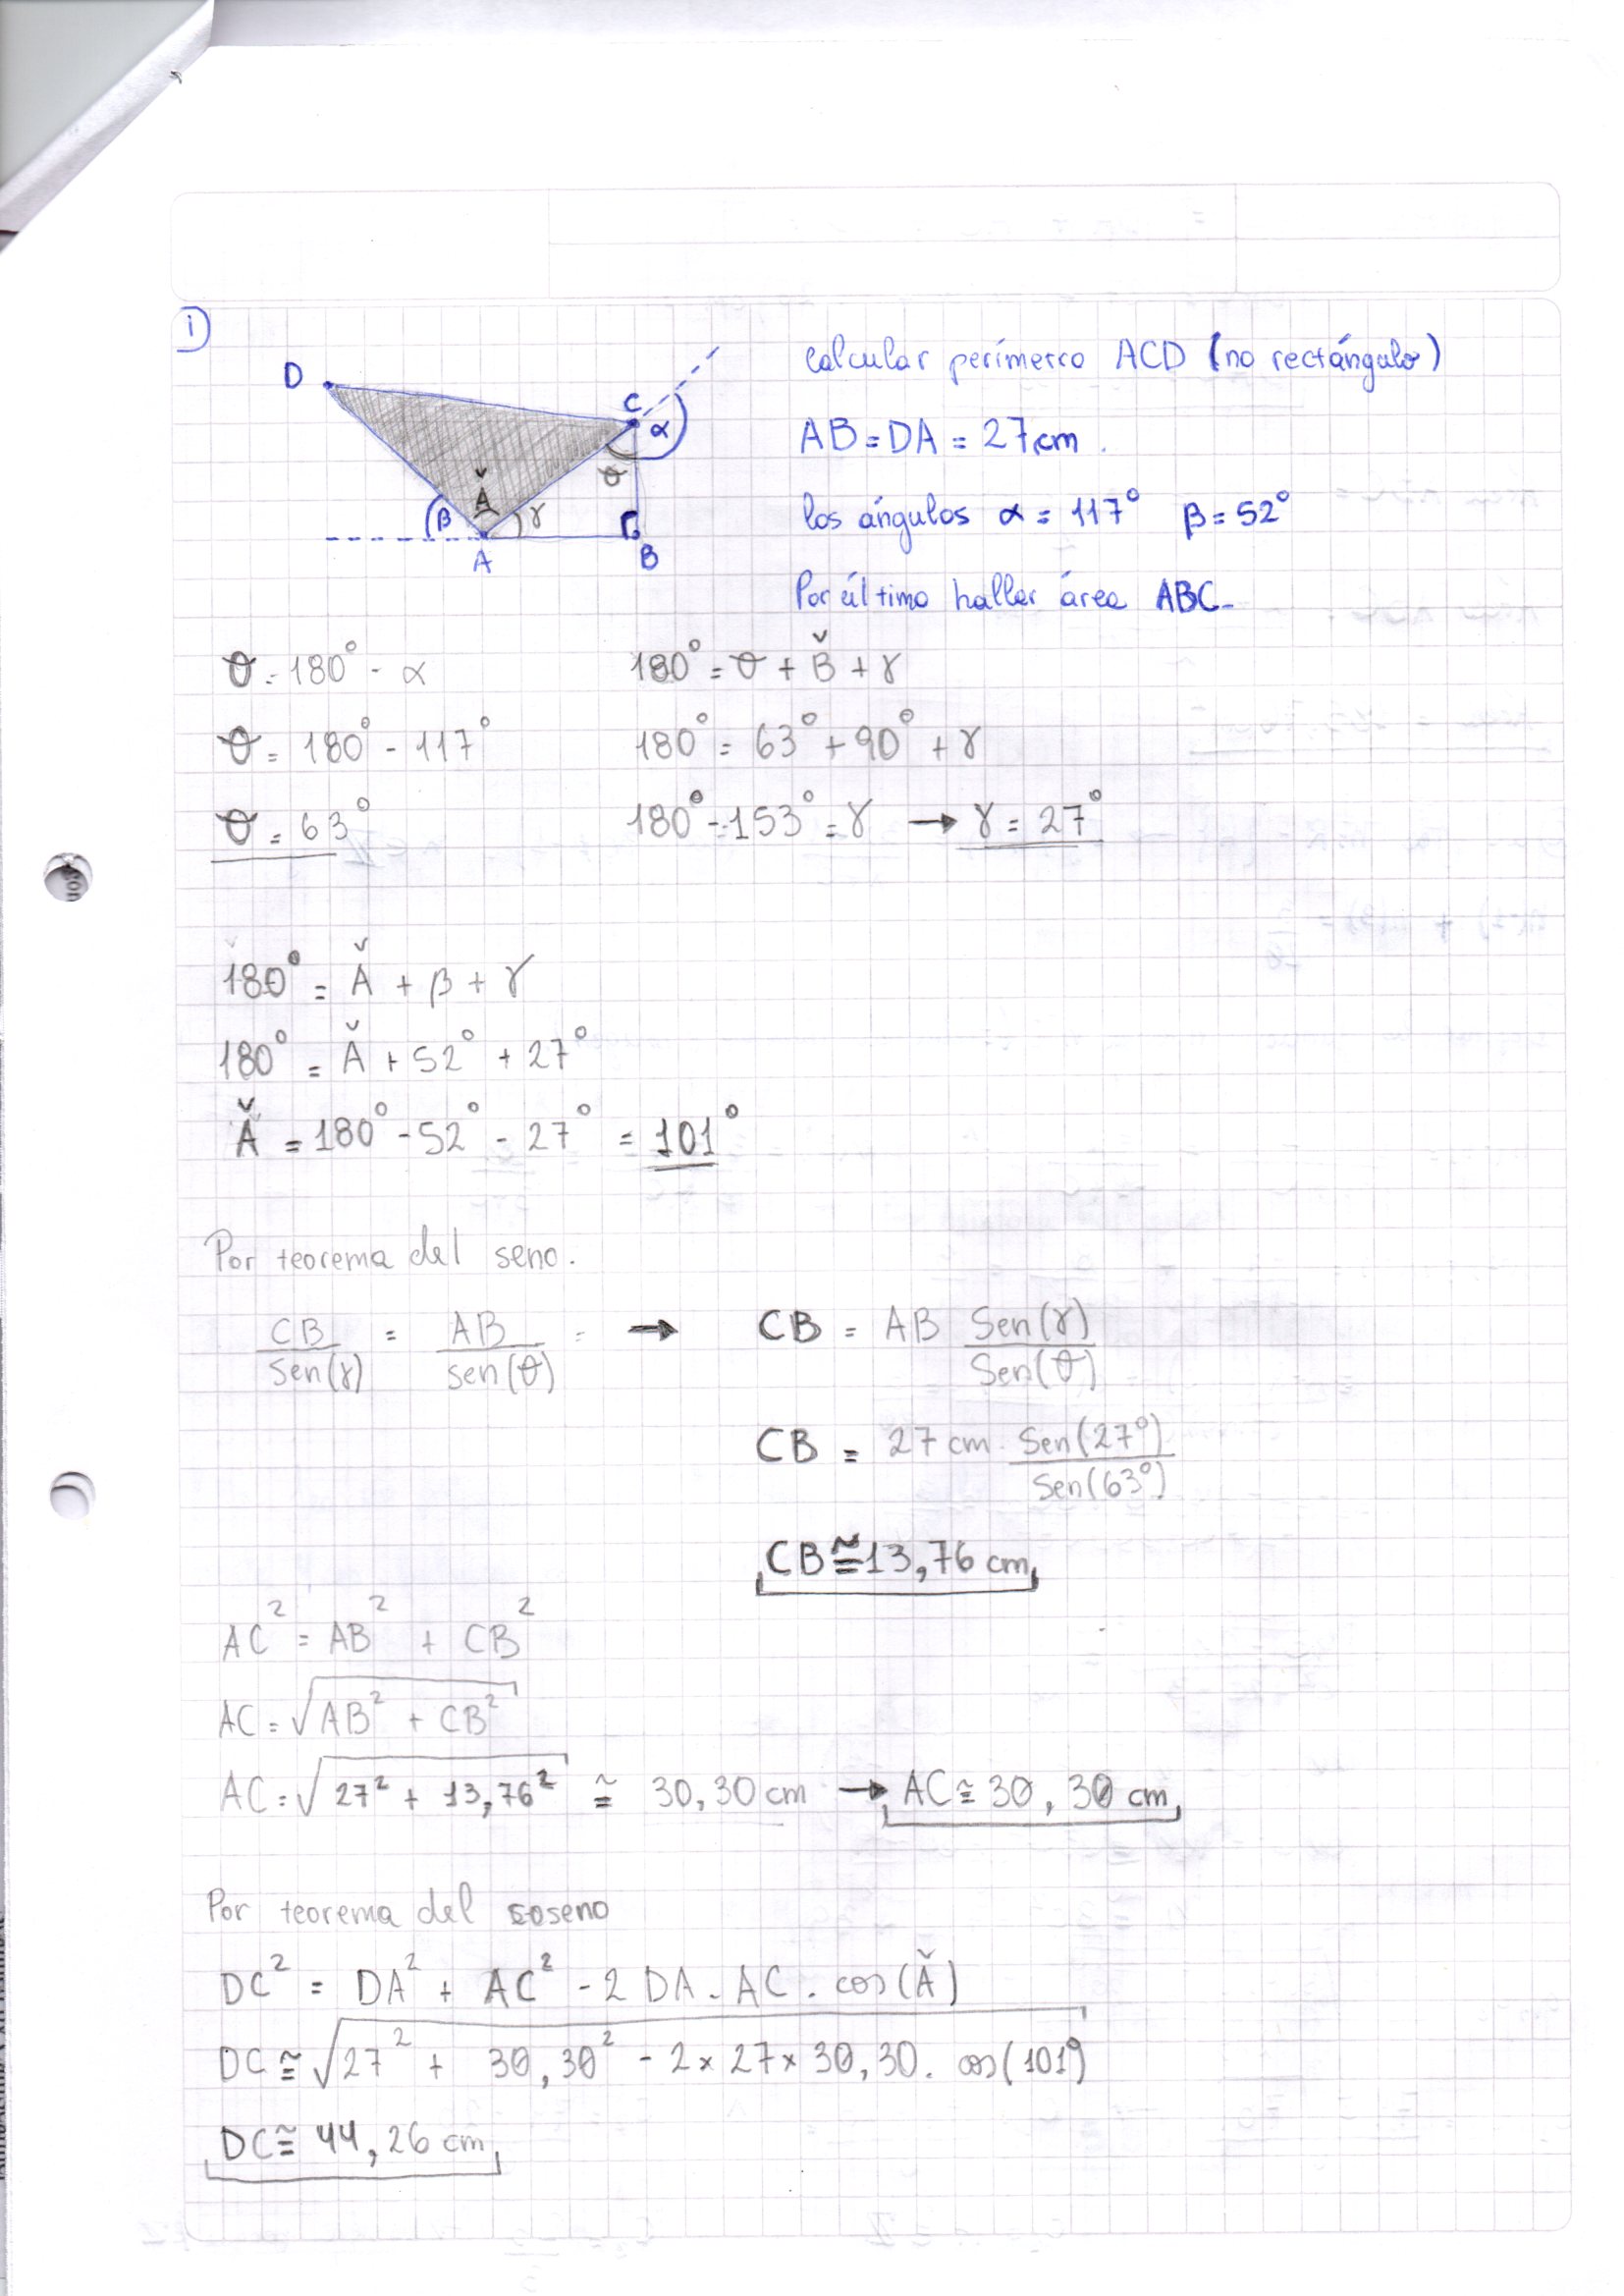 1)
D
C
α
θ
Ǎ
β
γ
A
B
Calcular perímetro ACD (no rectángulo)
AB = DA = 27cm.
los ángulos α = 117° β = 52°
Por último hallar área ABC.
θ = 180° - α
180° = θ + B̌ + γ
θ = 180° - 117°
180° = 63° + 90° + γ
θ = 63°
180° - 153° = γ → γ = 27°
180° = Ǎ + β + γ
180° = Ǎ + 52° + 27°
Ǎ = 180° - 52° - 27° = 101°
Por teorema del seno.
CB/Sen(γ) = AB/sen(θ) = → CB = AB Sen(γ)/Sen(θ)
CB = 27 cm. Sen(27°)/Sen(63°)
CB ≅ 13,76 cm
AC² = AB² + CB²
AC = √AB² + CB²
AC = √27² + 13,76² ≅ 30,30 cm → AC ≅ 30,30 cm
Por teorema del coseno
DC² = DA² + AC² - 2 DA . AC . cos(Ǎ)
DC ≅ √27² + 30,30² - 2 × 27 × 30,30 . cos(101°)
DC ≅ 44,26 cm